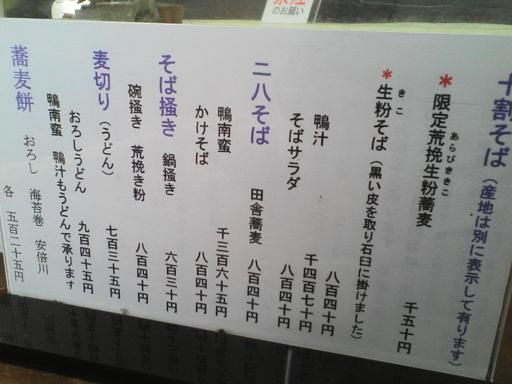 のお願い
十割そば（産地は別に表示して有ります）
あらびききこ
*限定荒挽生粉蕎麦 千五十円
きこ
*生粉そば（黒い皮を取り石臼に掛けました）
八百四十円
鴨汁 千四百七十円
そばサラダ 八百四十円
二八そば 田舎蕎麦 八百四十円
鴨南蛮 千三百六十五円
かけそば 八百四十円
そば掻き 鍋掻き 六百三十円
碗掻き 荒挽き粉 八百四十円
麦切り（うどん） 七百三十五円
おろしうどん 九百四十五円
鴨南蛮 鴨汁もうどんで承ります
蕎麦餅 おろし 海苔巻 安倍川 各 五百二十五円